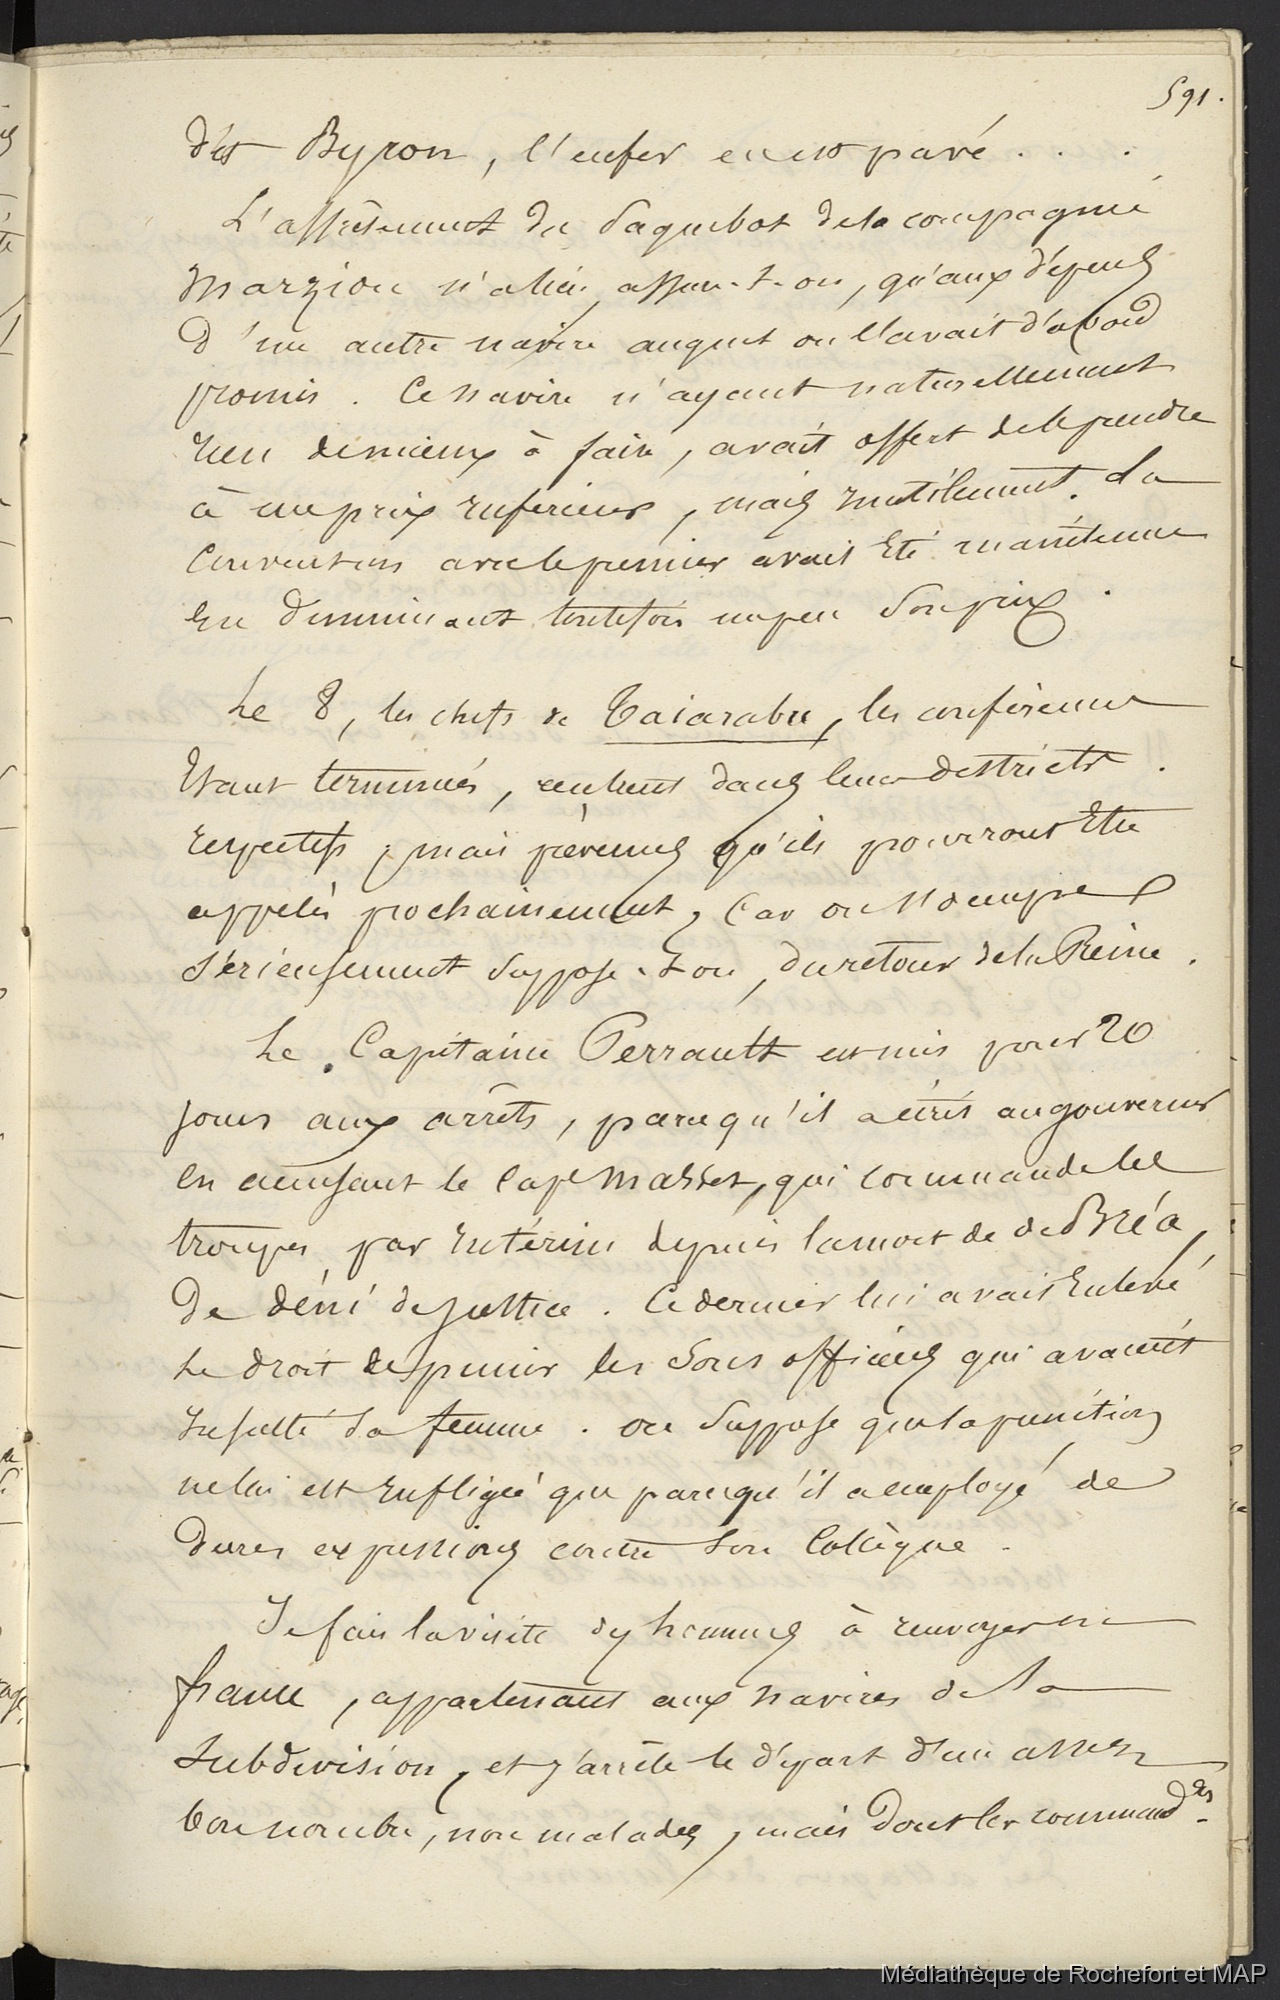 591.
dit Byron, l'enfer en est pavé . . .
L'affrètement du Paquebot de la compagnie
Marzion n'a lieu, assure-t-on, qu'aux dépens
D'un autre navire auquel on l'avait d'abord
promis. Ce navire n'ayant naturellement
rien de mieux à faire, avait offert de le prendre
à un prix inférieur, mais inutilement. La
Convention avec le premier avait été maintenue
En diminuant toutefois un peu son prix.
Le 8, les chefs de Taiarabu, les conférences
Etant terminées, rentrent dans leurs districts
respectifs, mais prévenus qu'ils pourront être
appelés prochainement, Car on s'occupe
sérieusement suppose-t-on, du retour de la Reine.
Le Capitaine Perrault est mis pour 20
jours aux arrêts, parcequ'il a écrit au gouverneur
en accusant le Cap^e Masset, qui commande les
troupes par intérim depuis la mort de de Bréa,
De déni de justice. Ce dernier lui avait enlevé
Le droit de punir les Sous officiers qui avaient
insulté sa femme. on suppose que la punition
ne lui est infligée que parcequ'il a employé de
Dures expressions contre son Collègue.
Je fais la visite des hommes à renvoyer en
france, appartenant aux navires de la
Subdivision, et j'arrête le départ d'un assez
bon nombre, non malades, mais dont les command^es
Médiathèque de Rochefort et MAP